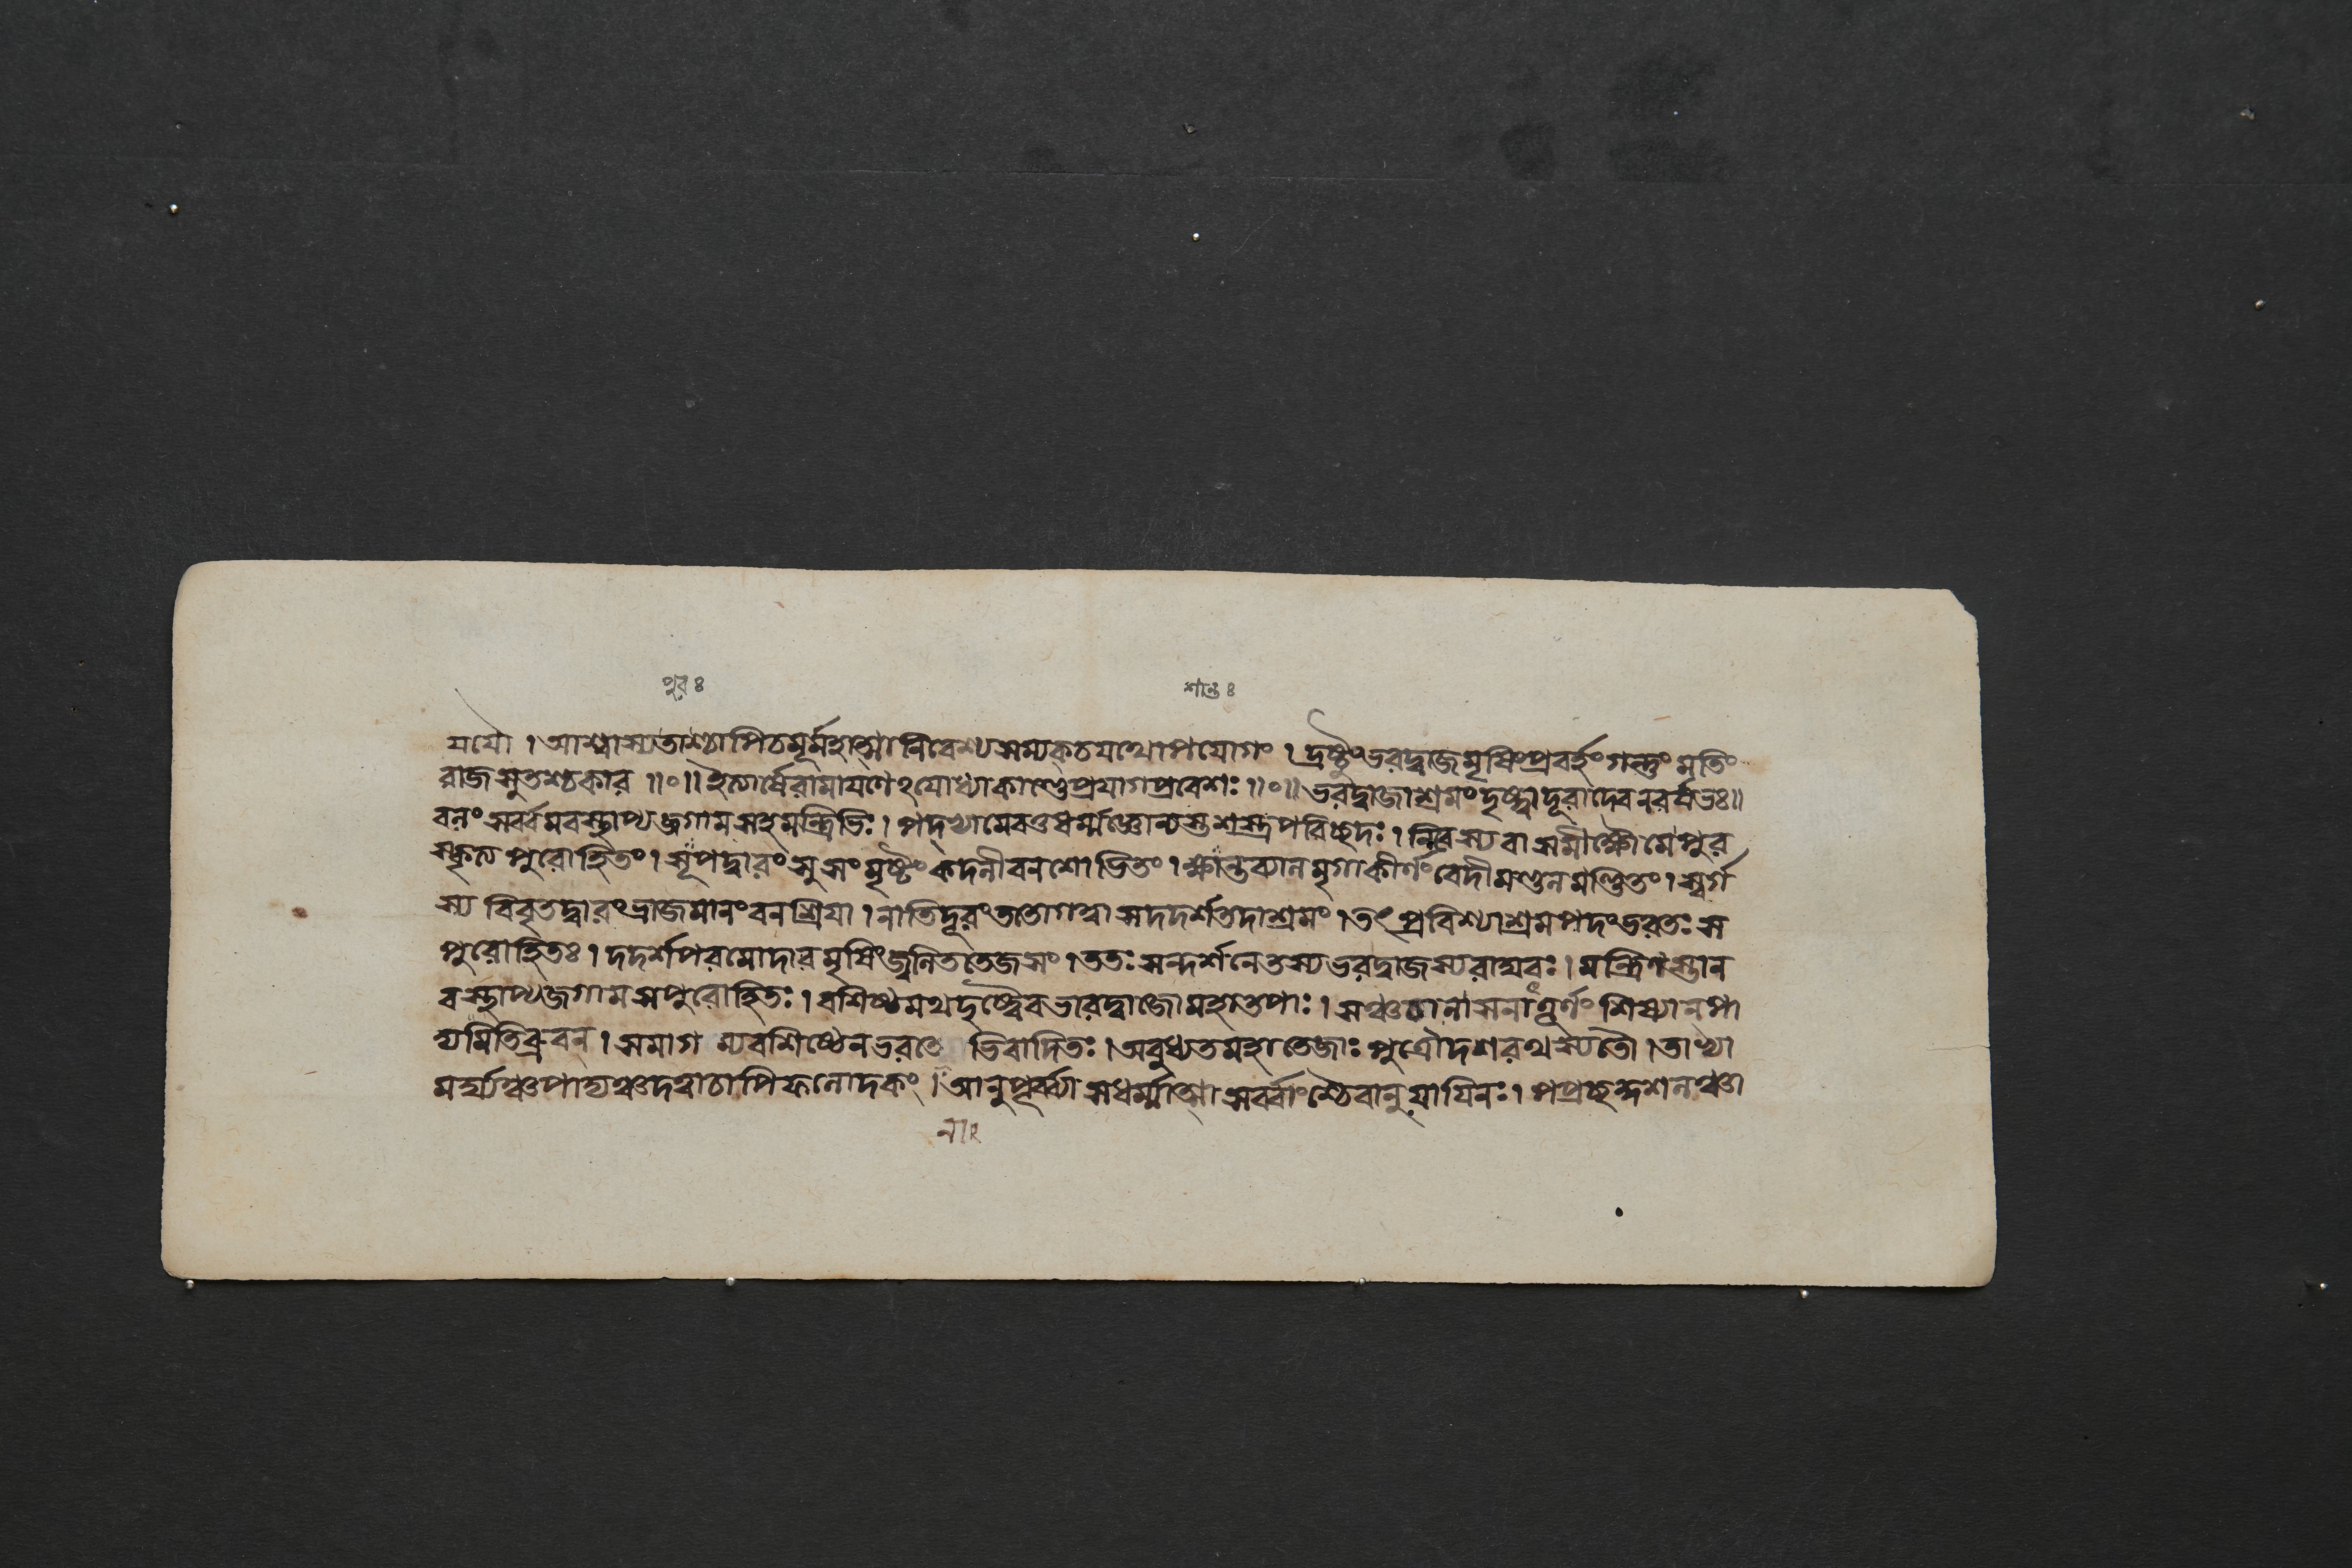 পুরঃ শান্তঃ
যযৌ । আশ্বাস্যতাশ্চাপিচমূর্মহাত্মা নিবেশ্যসম্যকচযথোপযোগং । দ্রষ্টুংভরদ্বাজমৃষিংপ্রবর্হংগন্তুংমতিং
রাজসুতশ্চকার ॥०॥ ইত্যার্ষেরামাযণেঽযোধ্যাকাণ্ডেপ্রযাগপ্রবেশঃ ॥०॥ ভরদ্বাজাশ্রমংদৃষ্ট্বাদূরাদেবনরর্ষভঃ॥
বলং সর্ব্বমবস্থাপ্যজগামসহমন্ত্রিভিঃ । পদ্ভ্যামেবতুধর্ম্মজ্ঞোন্যস্তশস্ত্রপরিচ্ছদঃ । নিবস্যবাসসীক্ষৌমেপুর
স্কৃত্য পুরোহিতং । সূপদ্বারংসুসংমৃষ্টংকদলীবনশোভিতং । ক্ষান্তব্যালমৃগাকীর্ণংবেদীমণ্ডলমণ্ডিতং । স্বর্গ
স্য বিবৃতদ্বারংভ্রাজমানংবনশ্রিযা । নাতিদূরংততোগত্বাসদদর্শতদাশ্রমং । তৎপ্রবিশ্যাশ্রমপদংভরতঃস
পুরোহিতঃ । দদর্শপরমোদারমৃষিংজ্বলিততেজসং । ততঃসন্দর্শনেতস্যভরদ্বাজস্যরাঘবঃ । মন্ত্রিণস্তান
বস্থাপ্যজগামসপুরোহিতঃ । বশিষ্ঠমথদৃষ্ট্বৈবভারদ্বাজোমহাতপাঃ । সঞ্চচালাসনাত্তূর্ণংশিষ্যানপা
দ্যমিতিব্রুবন্ । সমাগ ম্যবশিষ্ঠেনভরতে ভিবাদিতঃ । অবুধ্যতমহাতেজাঃপুত্রৌদশরথস্যতৌ । তাভ্যা
মর্ঘ্যঞ্চপাদ্যঞ্চদত্বাচাপিফলোদকং । আনুপূর্ব্ব্যাসধর্ম্মাত্মাসর্ব্বাংশ্চৈবানুযাযিনঃ । পপ্রচ্ছকুশলঞ্চা
নাং